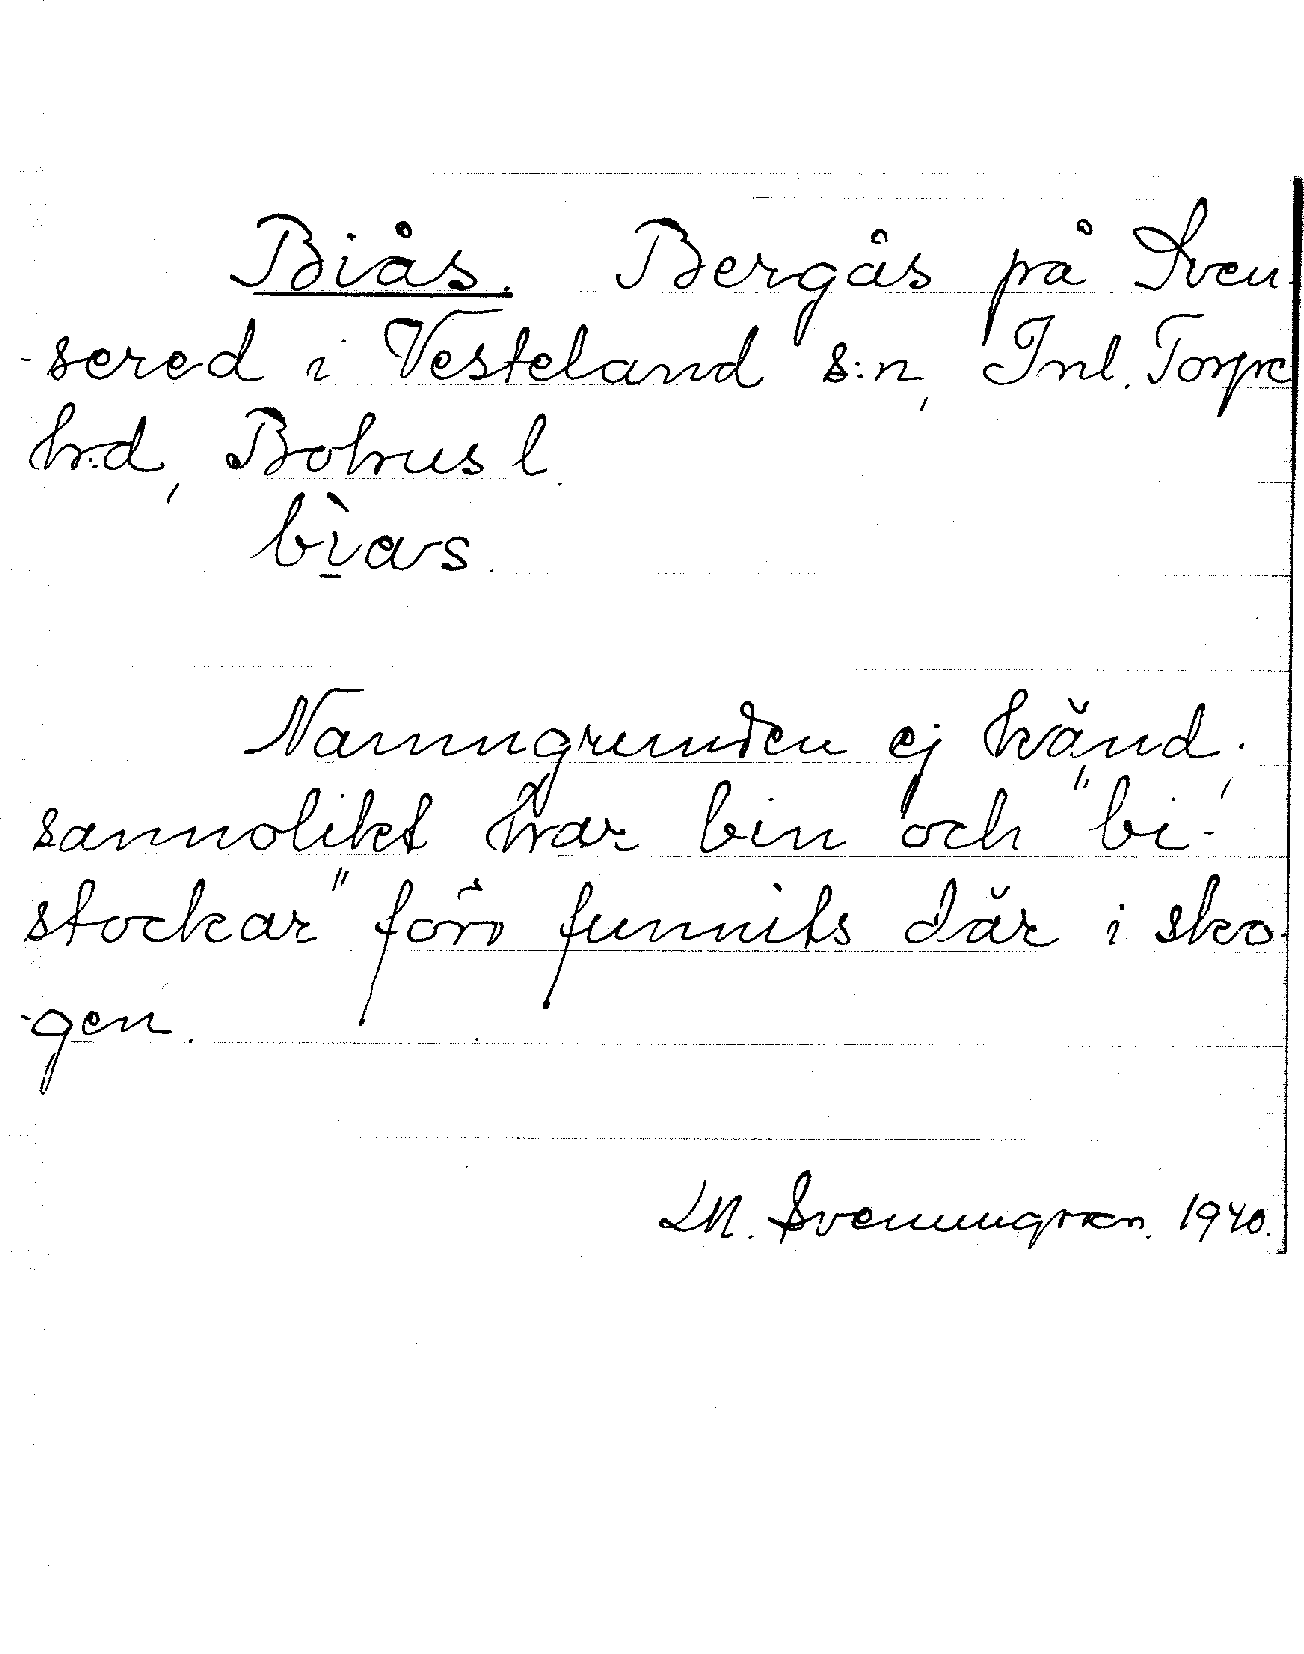 Biås. Bergås på Sven-
-sered i Vesteland s:n, Inl. Torpe
hrd, Bohus l.
bìas.
Namngrunden ej känd;
sannolikt har bin och "bi-
stockar" förr funnits där i sko-
-gen.
1940.